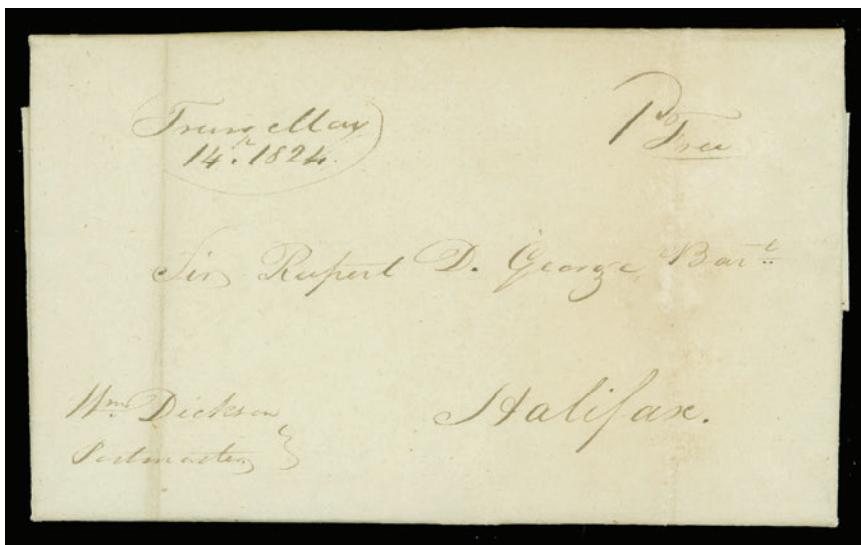 Truro May
14th. 1824.
Po Free
Sir Rupert D. George, Bart
Halifax.
Wm Dickson
Postmaster